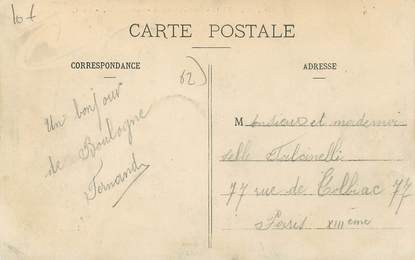 10 f
CARTE POSTALE
CORRESPONDANCE
ADRESSE
62)
Un bonjour
de Boulogne
Fernand
Monsieur et mademoi
selle Falcinelli
77 rue de Tolbiac 77
Paris XIIIème